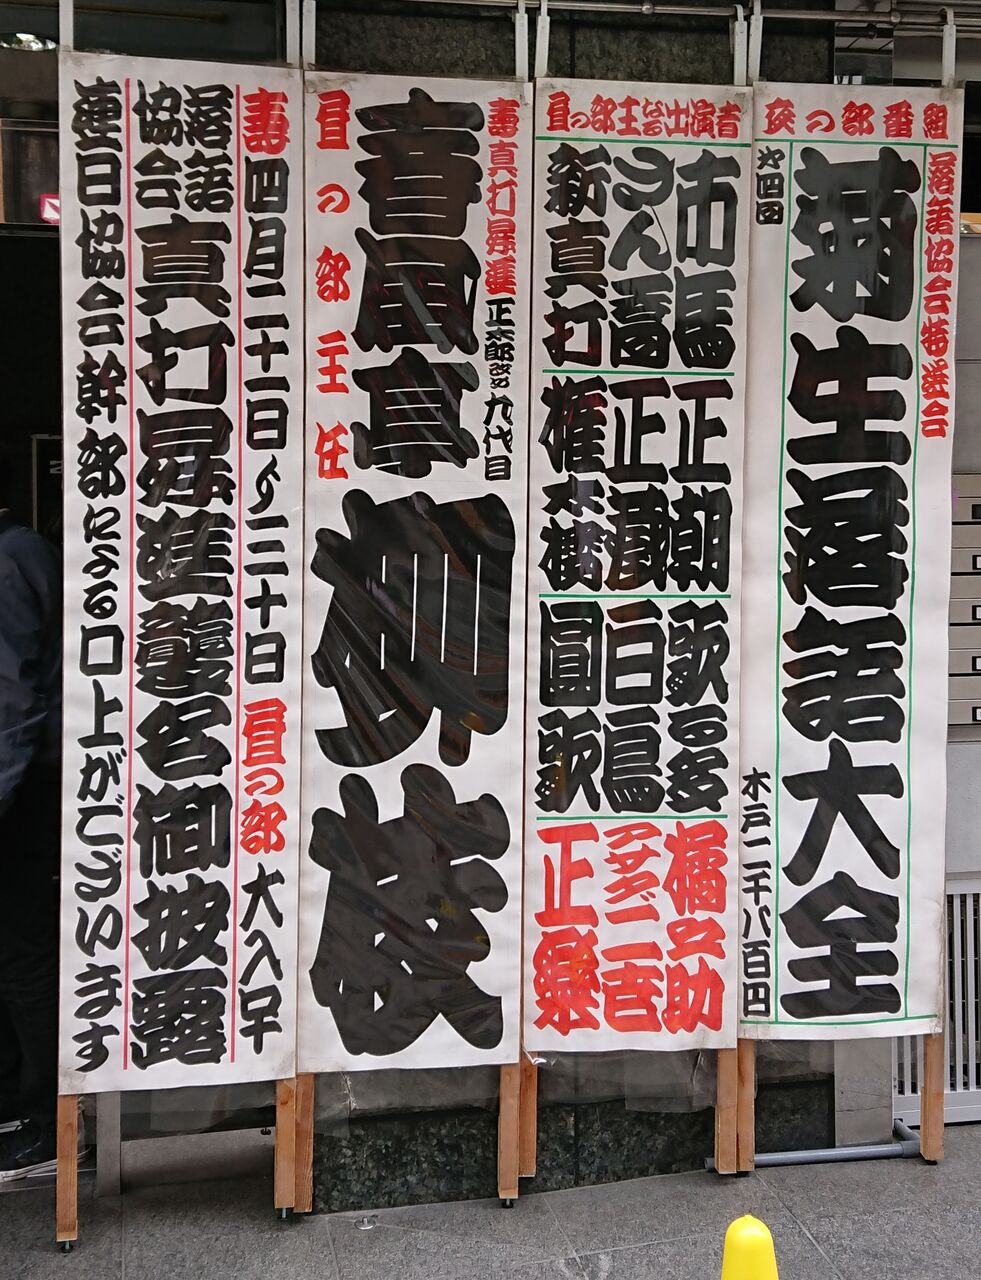 夜の部番組
落語協会特選会
生落語大全
四回
木戸二千八百円
昼の部主な出演者
市馬
さん喬
新真打
正朝
正蔵
権太楼
歌る多
白鳥
圓歌
橘之助
アサダ二世
正楽
寿真打昇進 正太郎改メ 九代目
春風亭 柳枝
昼の部主任
寿四月二十一日〜三十日 昼の部 大入叶
落語協会 真打昇進襲名御披露
連日協会幹部による口上がございます